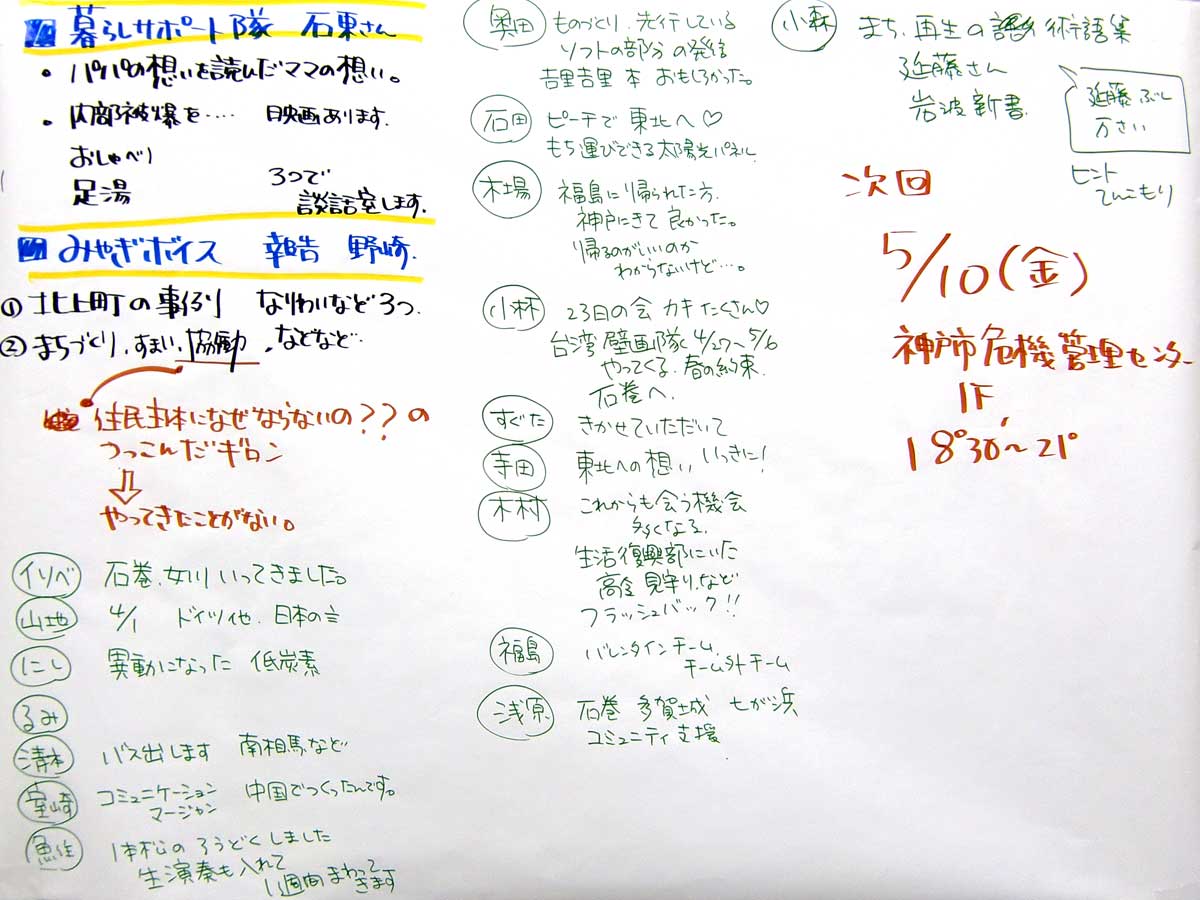 暮らしサポート隊 石東さん
・パパの想いを読んだママの想い。
・内部被爆を‥‥ 映画あります。
おしゃべり
足湯 3つで
談話室します。
みやぎボイス 報告 野崎
① 北上町の事例 なりわいなど3つ.
② まちづくり、すまい、協働、などなど…
住民主体になぜならないの??の
つっこんだギロン
⇩
やってきたことがない。
イソベ 石巻、女川 いってきました。
山地 4/1 ドイツ他、日本の
にし 異動になった 低炭素
るみ
清本 バス出します 南相馬など
室崎 コミュニケーション 中国でつくったんです。
マージャン
魚住 1本松の ろうどくしました
生演奏も入れて
1週間まわって
きます
奥田 ものづくり、先行している
ソフトの部分の発信
吉里吉里 本 おもしろかった。
石田 ピーチで東北へ♡
もち運びできる太陽光パネル
木場 福島に帰られた方、
神戸にきて良かった。
帰るのがいいのか
わからないけど…。
小林 23日の会 カキたくさん♡
台湾壁画隊 4/27〜5/6
やってくる、春の約束、
石巻へ、
すぐた きかせていただいて
寺田 東北への想い いっきに!
木村 これからも会う機会
多くなる、
生活復興部にいた
高金 見守り、など
フラッシュバック!!
福島 バレンタインチーム、
チーム外チーム
浅原 石巻 多賀城 七が浜
コミュニティ支援
小森 まち、再生の術語集
延藤さん
岩波新書
延藤ぶし
万さい
ヒント
てんこもり
次回
5/10(金)
神戸市危機管理センター
1F,
18°30〜21°